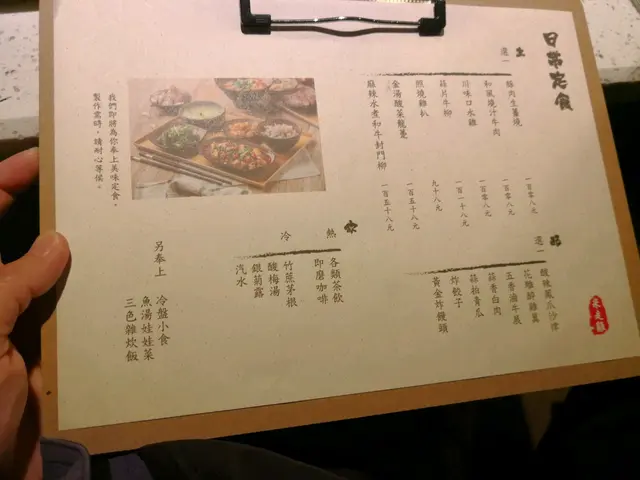 日常定食
主
選一
豚肉生薑燒 一百零八元
和風燒汁牛肉 一百零八元
川味口水雞 一百零八元
蒜片牛柳 一百一十八元
照燒雞扒 九十八元
金湯酸菜龍躉 一百五十八元
麻辣水煮和牛封門柳 一百五十八元
配
選一
酸辣鳳爪沙律
花雕醉雞翼
五香滷牛展
蒜香白肉
蒜拍青瓜
炸餃子
黃金炸饅頭
飲
熱
各類茶飲
即磨咖啡
冷
竹蔗茅根
酸梅湯
銀菊露
汽水
另奉上
冷盤小食
魚湯娃娃菜
三色雜炊飯
我們即將為你奉上美味定食。
製作需時，請耐心等候。